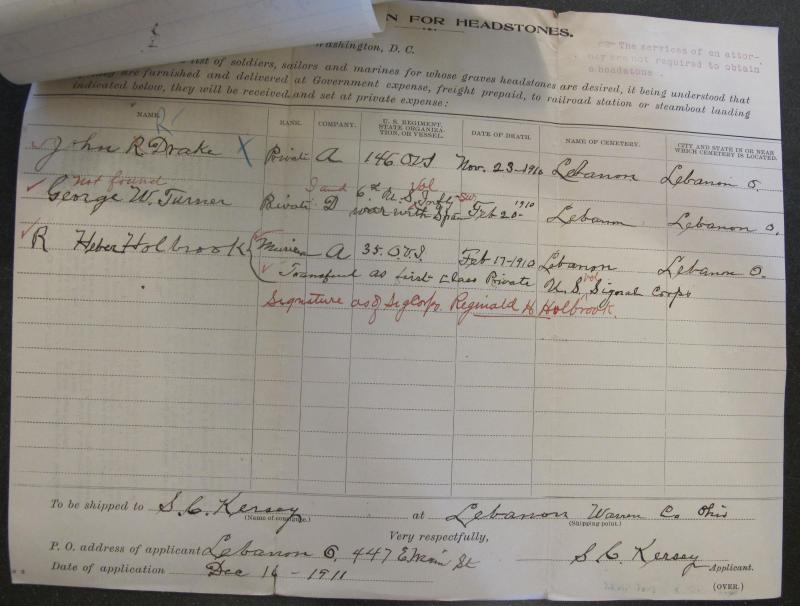 N FOR HEADSTONES.
Washington, D. C.
The services of an attor-
ney are not required to obtain
a headstone.
list of soldiers, sailors and marines for whose graves headstones are desired, it being understood that
they are furnished and delivered at Government expense, freight prepaid, to railroad station or steamboat landing
indicated below, they will be received and set at private expense:
NAME. RANK. COMPANY. U. S. REGIMENT, STATE ORGANIZATION, OR VESSEL. DATE OF DEATH. NAME OF CEMETERY. CITY AND STATE IN OR NEAR WHICH CEMETERY IS LOCATED.
R
John R Drake X Private A 146 O.V.I Nov. 23-1910 Lebanon Lebanon O.
not found
George W. Turner Private I and D 6th U.S. Vol Infty war with Spain Feb 20-1910 Lebanon Lebanon O.
R Heber Holbrook Musician A 35. O.V.I. Feb 17-1910 Lebanon Lebanon O.
Transferred as first class Private U.S. vol Signal Corps
Signature as of Sig Corps. Reginald H. Holbrook.
To be shipped to S. C. Kersey at Lebanon Warren Co Ohio
(Name of consignee.) (Shipping point.)
Very respectfully,
P. O. address of applicant Lebanon O. 447 E Main St S. C. Kersey Applicant.
Date of application Dec 16-1911 (OVER.)